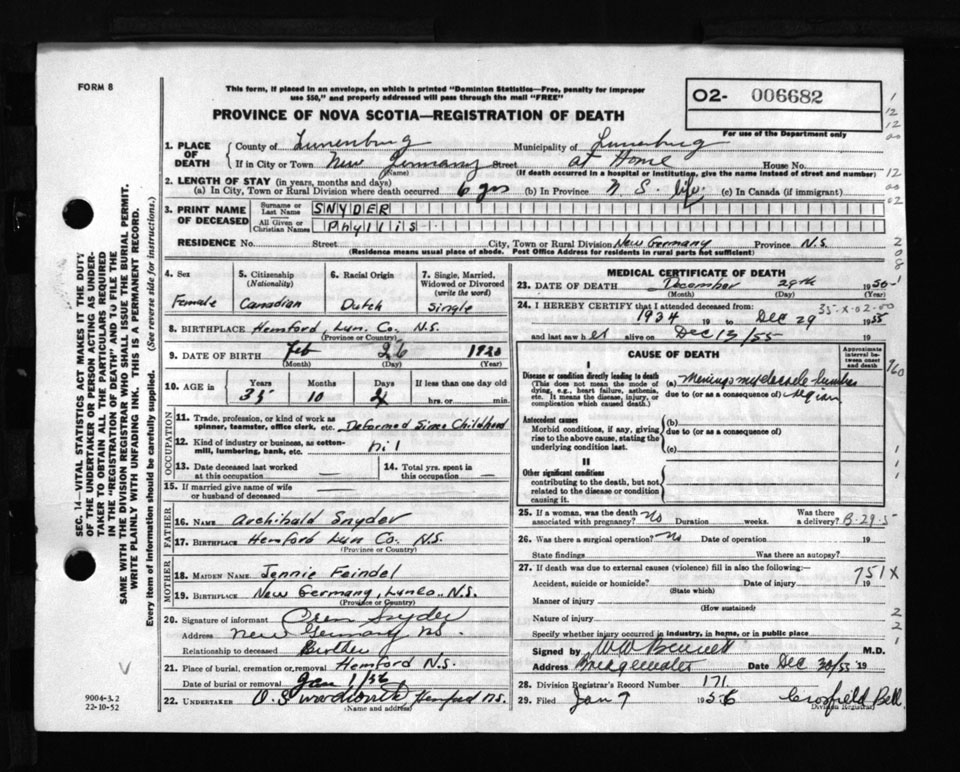 FORM 8
This form, if placed in an envelope, on which is printed "Dominion Statistics—Free, penalty for improper
use $50," and properly addressed will pass through the mail "FREE"
PROVINCE OF NOVA SCOTIA—REGISTRATION OF DEATH
02- 006682
For use of the Department only
1. PLACE OF DEATH
County of Lunenburg Municipality of Lunenburg
If in City or Town New Germany Street at Home House No.
(Name) (If death occurred in a hospital or institution, give the name instead of street and number)
2. LENGTH OF STAY (in years, months and days)
(a) In City, Town or Rural Division where death occurred 6 yrs (b) In Province N.S. life. (c) In Canada (if immigrant)
3. PRINT NAME OF DECEASED
Surname or Last Name SNYDER
All Given or Christian Names Phyllis
RESIDENCE No. Street City, Town or Rural Division New Germany Province N.S.
(Residence means usual place of abode. Post Office Address for residents in rural parts not sufficient)
4. Sex
Female
5. Citizenship
(Nationality)
Canadian
6. Racial Origin
Dutch
7. Single, Married, Widowed or Divorced
(write the word)
Single
8. BIRTHPLACE Hemford Lun. Co. N.S.
(Province or Country)
9. DATE OF BIRTH Feb 26 1920
(Month) (Day) (Year)
10. AGE in
Years Months Days If less than one day old
35 10 hrs. or min.
OCCUPATION
11. Trade, profession, or kind of work as
spinner, teamster, office clerk, etc. Deformed Since Childhood
12. Kind of industry or business, as cotton-
mill, lumbering, bank, etc. nil
13. Date deceased last worked
at this occupation —
14. Total yrs. spent in
this occupation —
15. If married give name of wife
or husband of deceased —
FATHER
16. NAME Archibald Snyder
17. BIRTHPLACE Hemford Lun Co. N.S.
(Province or Country)
MOTHER
18. MAIDEN NAME Jennie Feindel
19. BIRTHPLACE New Germany, Lun Co., N.S.
(Province or Country)
20. Signature of informant Snyder
Address New Germany NS.
Relationship to deceased Brother
21. Place of burial, cremation or removal Hemford N.S.
Date of burial or removal Jan 1/56
22. UNDERTAKER Hemford N.S.
(Name and address)
MEDICAL CERTIFICATE OF DEATH
23. DATE OF DEATH December 29th
(Month) (Day) (Year)
24. I HEREBY CERTIFY that I attended deceased from:
35-x-02-00
1934 19 to Dec 29 1955
and last saw her alive on Dec 13/55 19
CAUSE OF DEATH
Approximate interval between onset and death
I
Disease or condition directly leading to death
(This does not mean the mode of dying, e.g., heart failure, asthenia, etc. It means the disease, injury, or complication which caused death.)
(a) Meningomyelocele-lumbar
due to (or as a consequence of) region
Antecedent causes
Morbid conditions, if any, giving rise to the above cause, stating the underlying condition last.
(b)
due to (or as a consequence of)
(c)
II
Other significant conditions
contributing to the death, but not related to the disease or condition causing it.
760
25. If a woman, was the death associated with pregnancy? No Duration weeks. Was there a delivery?
26. Was there surgical operation? No Date of operation 19
State findings Was there an autopsy?
27. If death was due to external causes (violence) fill in also the following:—
751X
Accident, suicide or homicide? Date of injury 19
(State which)
Manner of injury
(How sustained)
Nature of injury
Specify whether injury occurred in industry, in home, or in public place
Signed by W W Bennett M.D.
Address Bridgewater Date Dec 30/55 19
28. Division Registrar's Record Number 171
29. Filed Jan 7 1956 Crofield Bell
Division Registrar
SEC. 14—VITAL STATISTICS ACT MAKES IT THE DUTY
OF THE UNDERTAKER OR PERSON ACTING AS UNDER-
TAKER TO OBTAIN ALL THE PARTICULARS REQUIRED
IN THE "REGISTRATION OF DEATH" AND TO FILE THE
SAME WITH THE DIVISION REGISTRAR WHO SHALL ISSUE THE BURIAL PERMIT.
WRITE PLAINLY WITH UNFADING INK. THIS IS A PERMANENT RECORD.
Every item of information should be carefully supplied. (See reverse side for instructions.)
9004-3.2
22-10-52